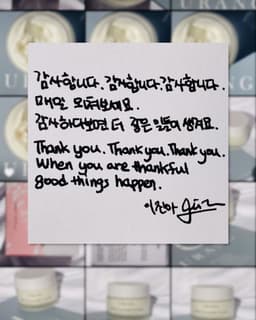 감사합니다. 감사합니다. 감사합니다.
매일 외쳐보세요.
감사하다보면 더 좋은 일들이 생겨요.
Thank you. Thank you. Thank you.
When you are thankful
good things happen.